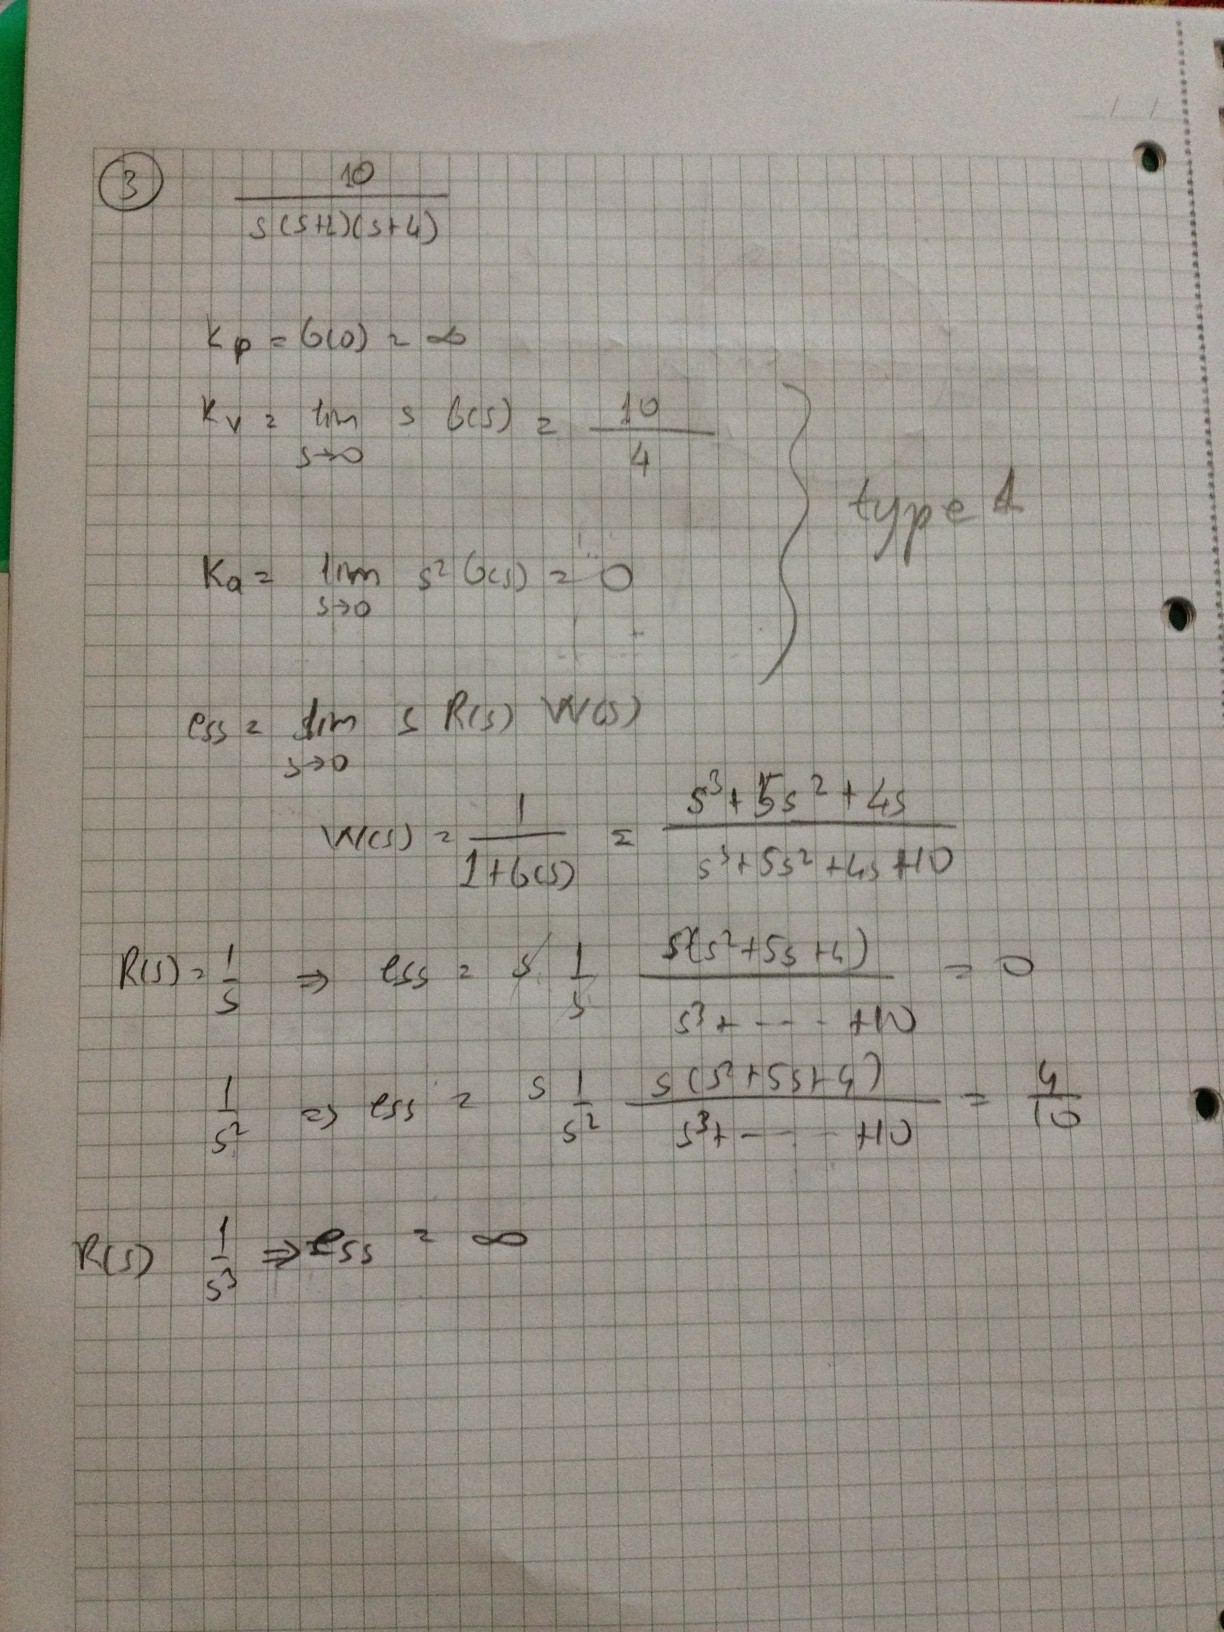 3
10
s(s+1)(s+4)
Kp = G(0) = ∞
Kv = lim s G(s) = 10
s→0 4
type 1
Ka = lim s² G(s) = 0
s→0
ess = lim s R(s) W(s)
s→0
W(s) = 1 / 1+G(s) = s³+5s²+4s / s³+5s²+4s+10
R(s) = 1/s ⇒ ess = s 1/s s(s²+5s+4) / s³+ ---- +10 = 0
1/s² ⇒ ess = s 1/s² s(s²+5s+4) / s³+ ---- +10 = 4/10
R(s) 1/s³ ⇒ ess = ∞